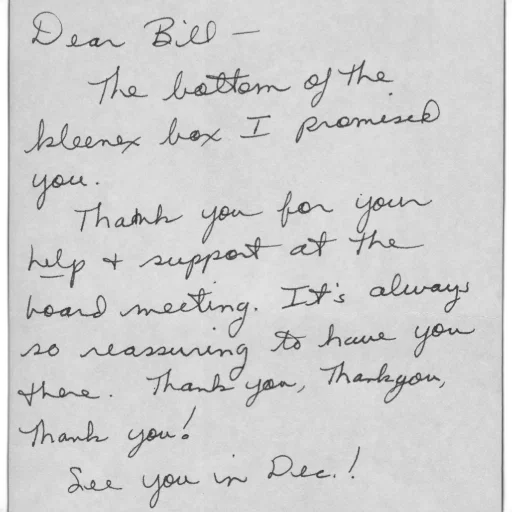 Dear Bill —
The bottom of the
kleenex box I promised
you.
Thank you for your
help + support at the
board meeting. It's always
so reassuring to have you
there. Thank you, Thankyou,
Thank you!
See you in Dec.!